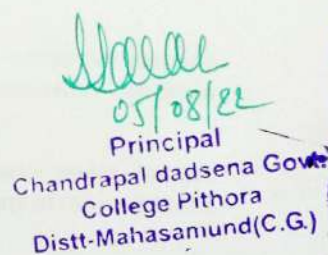 05/08/22
Principal
Chandrapal dadsena Govt.
College Pithora
Distt-Mahasamund(C.G.)